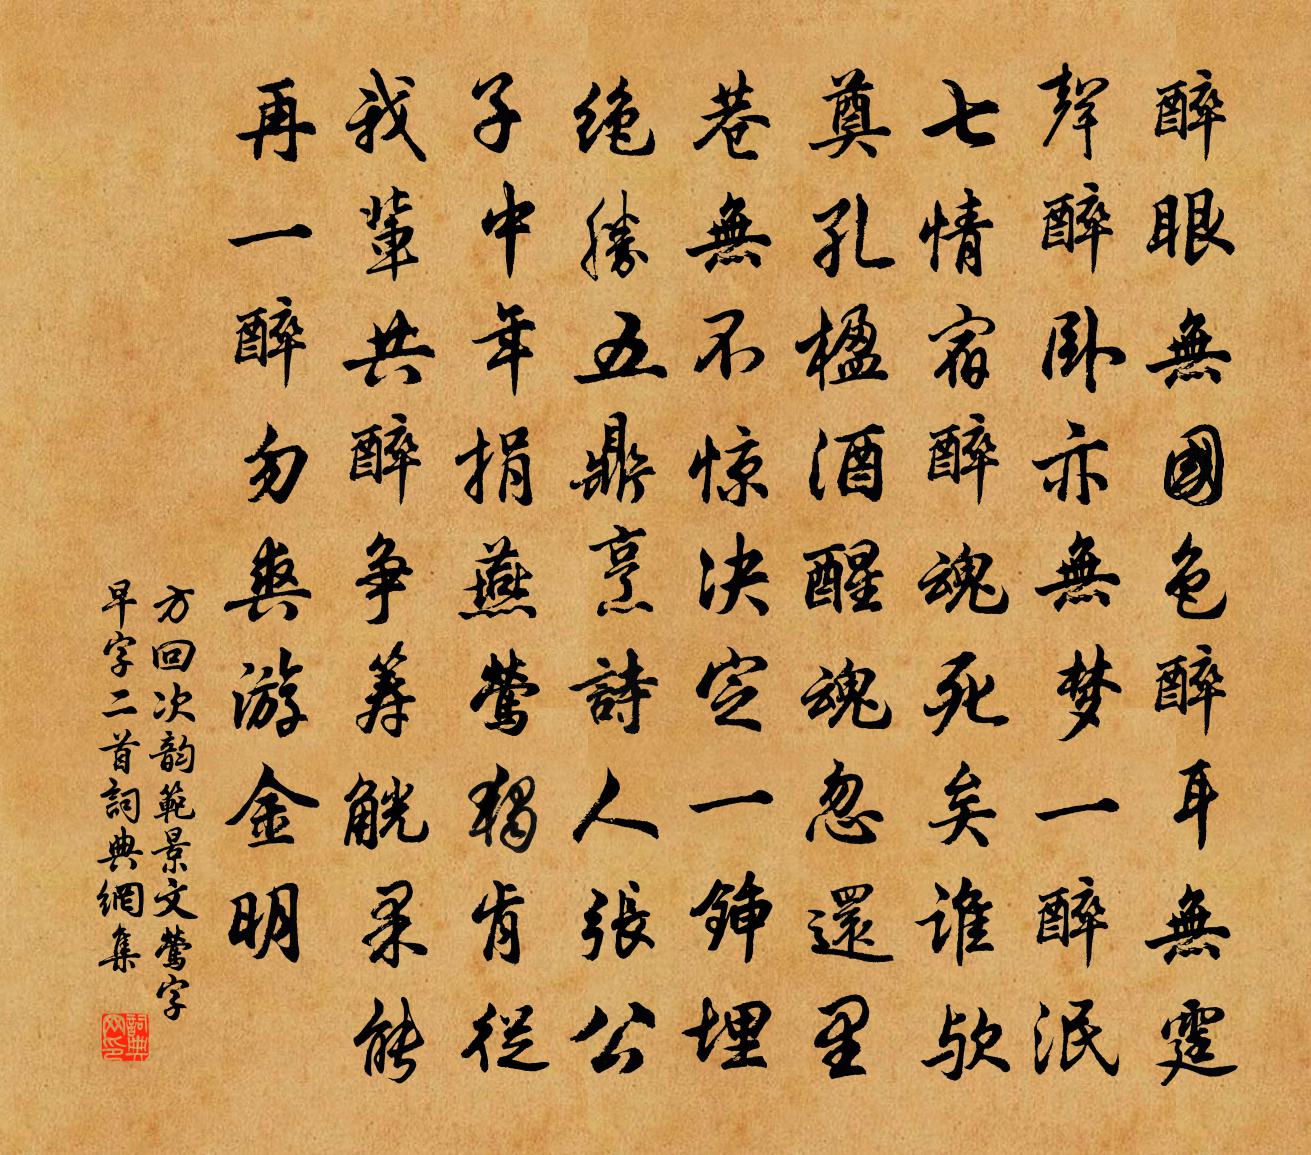 醉眼無國色醉耳無霆
聲醉卧亦無梦一醉泯
七情宿醉魂死矣誰歟
奠孔楹酒醒魂忽還里
巷無不惊决定一鍤埋
绝勝五鼎烹詩人張公
子中年捐燕鶯獨肯從
我輩共醉争筹觥果能
再一醉勿爽游金明
方回次韵範景文鶯字
早字二首詞典網集